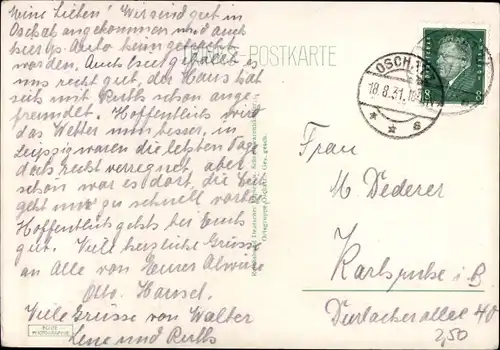 Meine Lieben! Wir sind gut in
Oschatz angekommen und auch
hier p. Auto heimgefahren
worden. Auch hier gefällt es
uns recht gut, der Hans hat
sich mit Ruth schon ange-
freundet. Hoffentlich wird
das Wetter nun besser, in
Leipzig waren die letzten Tage
doch recht verregnet, aber
schön war es dort, die Zeit
geht nur zu schnell vorbei.
Hoffentlich gehts bei Euch
gut. Viele herzliche Grüsse
an Alle von Eurer
Otto. Hansel.
Viele Grüsse von Walter
Lene und Ruth
POSTKARTE
OSCHATZ
18.8.31.
* * e
8 8
Frau
M Dederer
Karlsruhe i B
Durlacherallee 40
2,50
ECHTE
PHOTOGRAPHIE